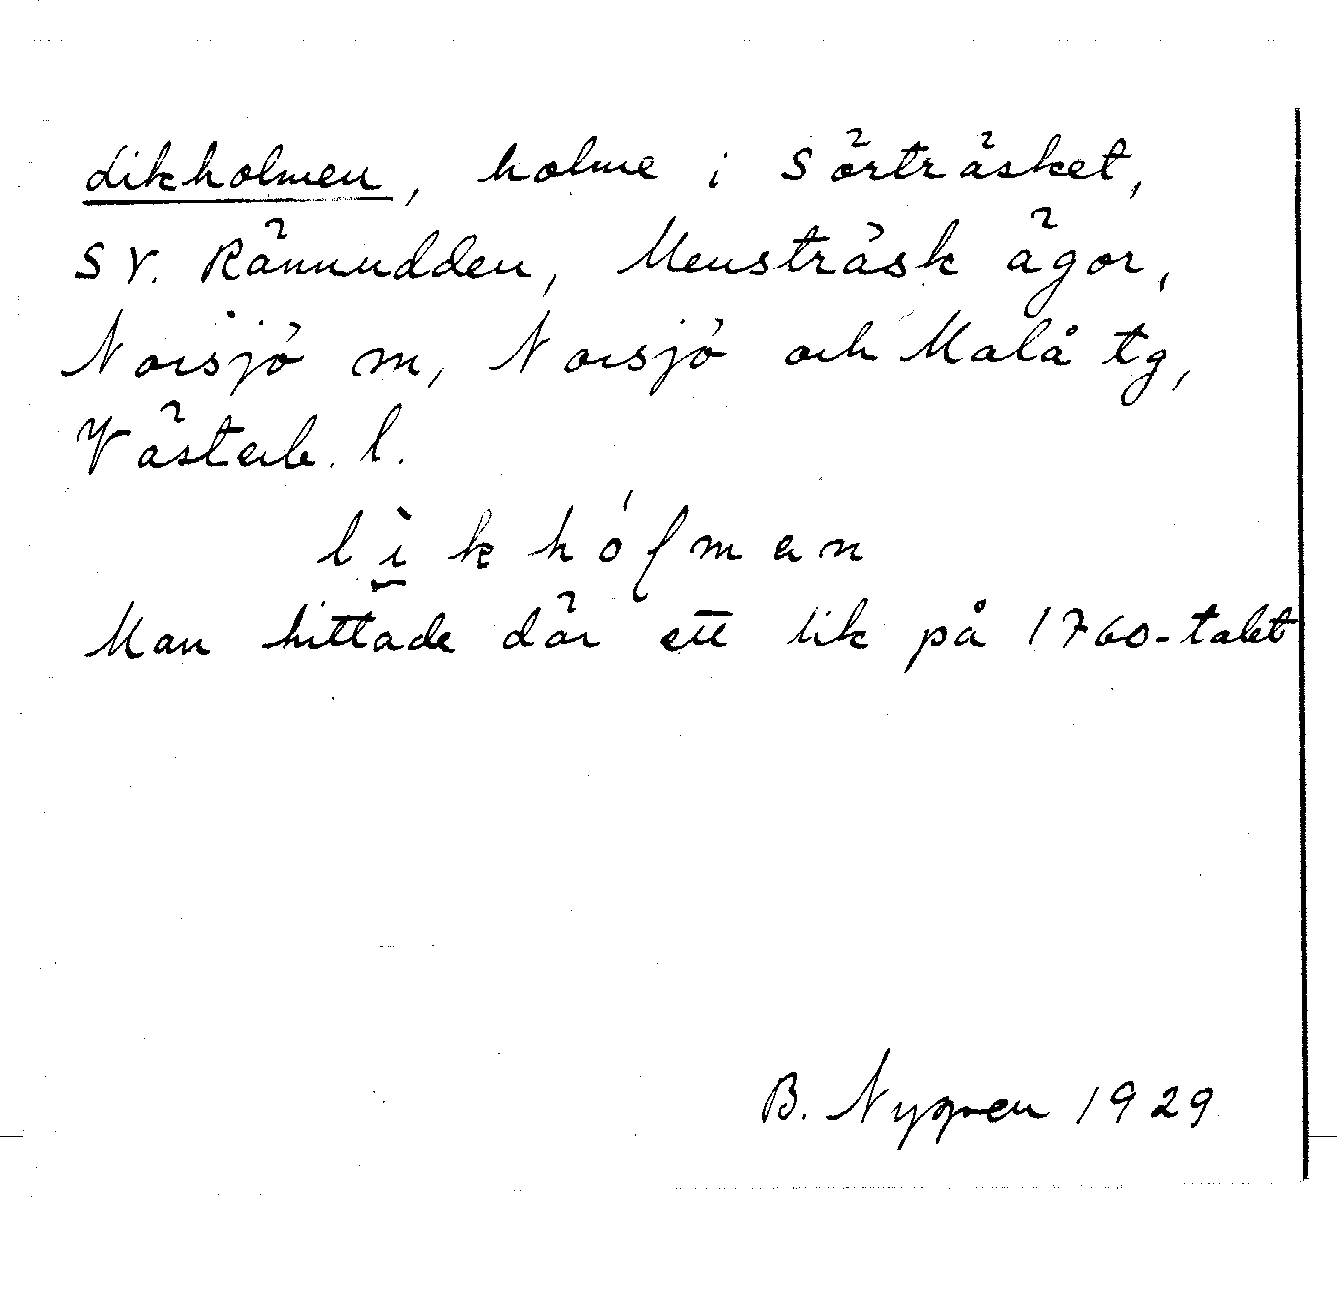 Likholmen, holme i Sörträsket,
SV. Rännudden, Mensträsk ägor,
Norsjö sn, Norsjö och Malå tg,
Västerb. l.
lìkhólman
Man hittade där ett lik på 1760-talet
B. Nygren 1929